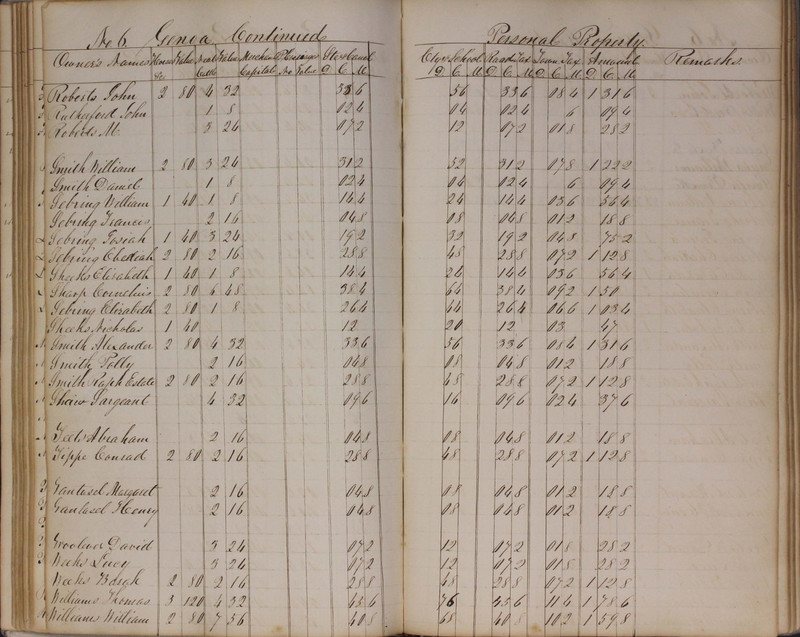 No 6 Genoa Continued Personal Property
Owner's Names Horses Value Neat Cattle Value Merchants Capital No Value State & Canal D C M City & School D C M Road Tax D C M Town Tax D C M Amount D C M Remarks
Roberts John 2 80 4 32 33 6 56 33 6 08 4 1 31 6
Rutherford John 1 8 02 4 04 02 4 6 09 4
Roberts M. 3 24 07 2 12 07 2 01 8 28 2
Smith William 2 80 3 24 31 2 52 31 2 07 8 1 22 2
Smith Daniel 1 8 02 4 04 02 4 6 09 4
Sebring William 1 40 1 8 14 4 24 14 4 03 6 56 4
Sebring Francis 2 16 04 8 08 04 8 01 2 18 8
Sebring Josiah 1 40 3 24 19 2 32 19 2 04 8 75 2
Sebring 2 80 2 16 28 8 48 28 8 07 2 1 12 8
Sheeks Elisabeth 1 40 1 8 14 4 24 14 4 03 6 56 4
Sharp Cornelius 2 80 6 48 38 4 64 38 4 09 2 1 50
Sebring Elizabeth 2 80 1 8 26 4 44 26 4 06 6 1 03 4
Sheeks Nicholas 1 40 12 20 12 03 47
Smith Alexander 2 80 4 32 33 6 56 33 6 08 4 1 31 6
Smith Polly 2 16 04 8 08 04 8 01 2 18 8
Smith Ralph Estate 2 80 2 16 28 8 48 28 8 07 2 1 12 8
Sargeant 4 32 09 6 16 09 6 02 4 37 6
Teets Abraham 2 16 04 8 08 04 8 01 2 18 8
Tippe Conrad 2 80 2 16 28 8 48 28 8 07 2 1 12 8
Vantasel Margaret 2 16 04 8 08 04 8 01 2 18 8
Vantasel Henry 2 16 04 8 08 04 8 01 2 18 8
David 3 24 07 2 12 07 2 01 8 28 2
Weeks Lucy 3 24 07 2 12 07 2 01 8 28 2
Weeks 2 80 2 16 28 8 48 28 8 07 2 1 12 8
Williams Thomas 3 120 4 32 45 6 76 45 6 11 4 1 78 6
Williams William 2 80 7 56 40 8 68 40 8 10 2 1 59 8